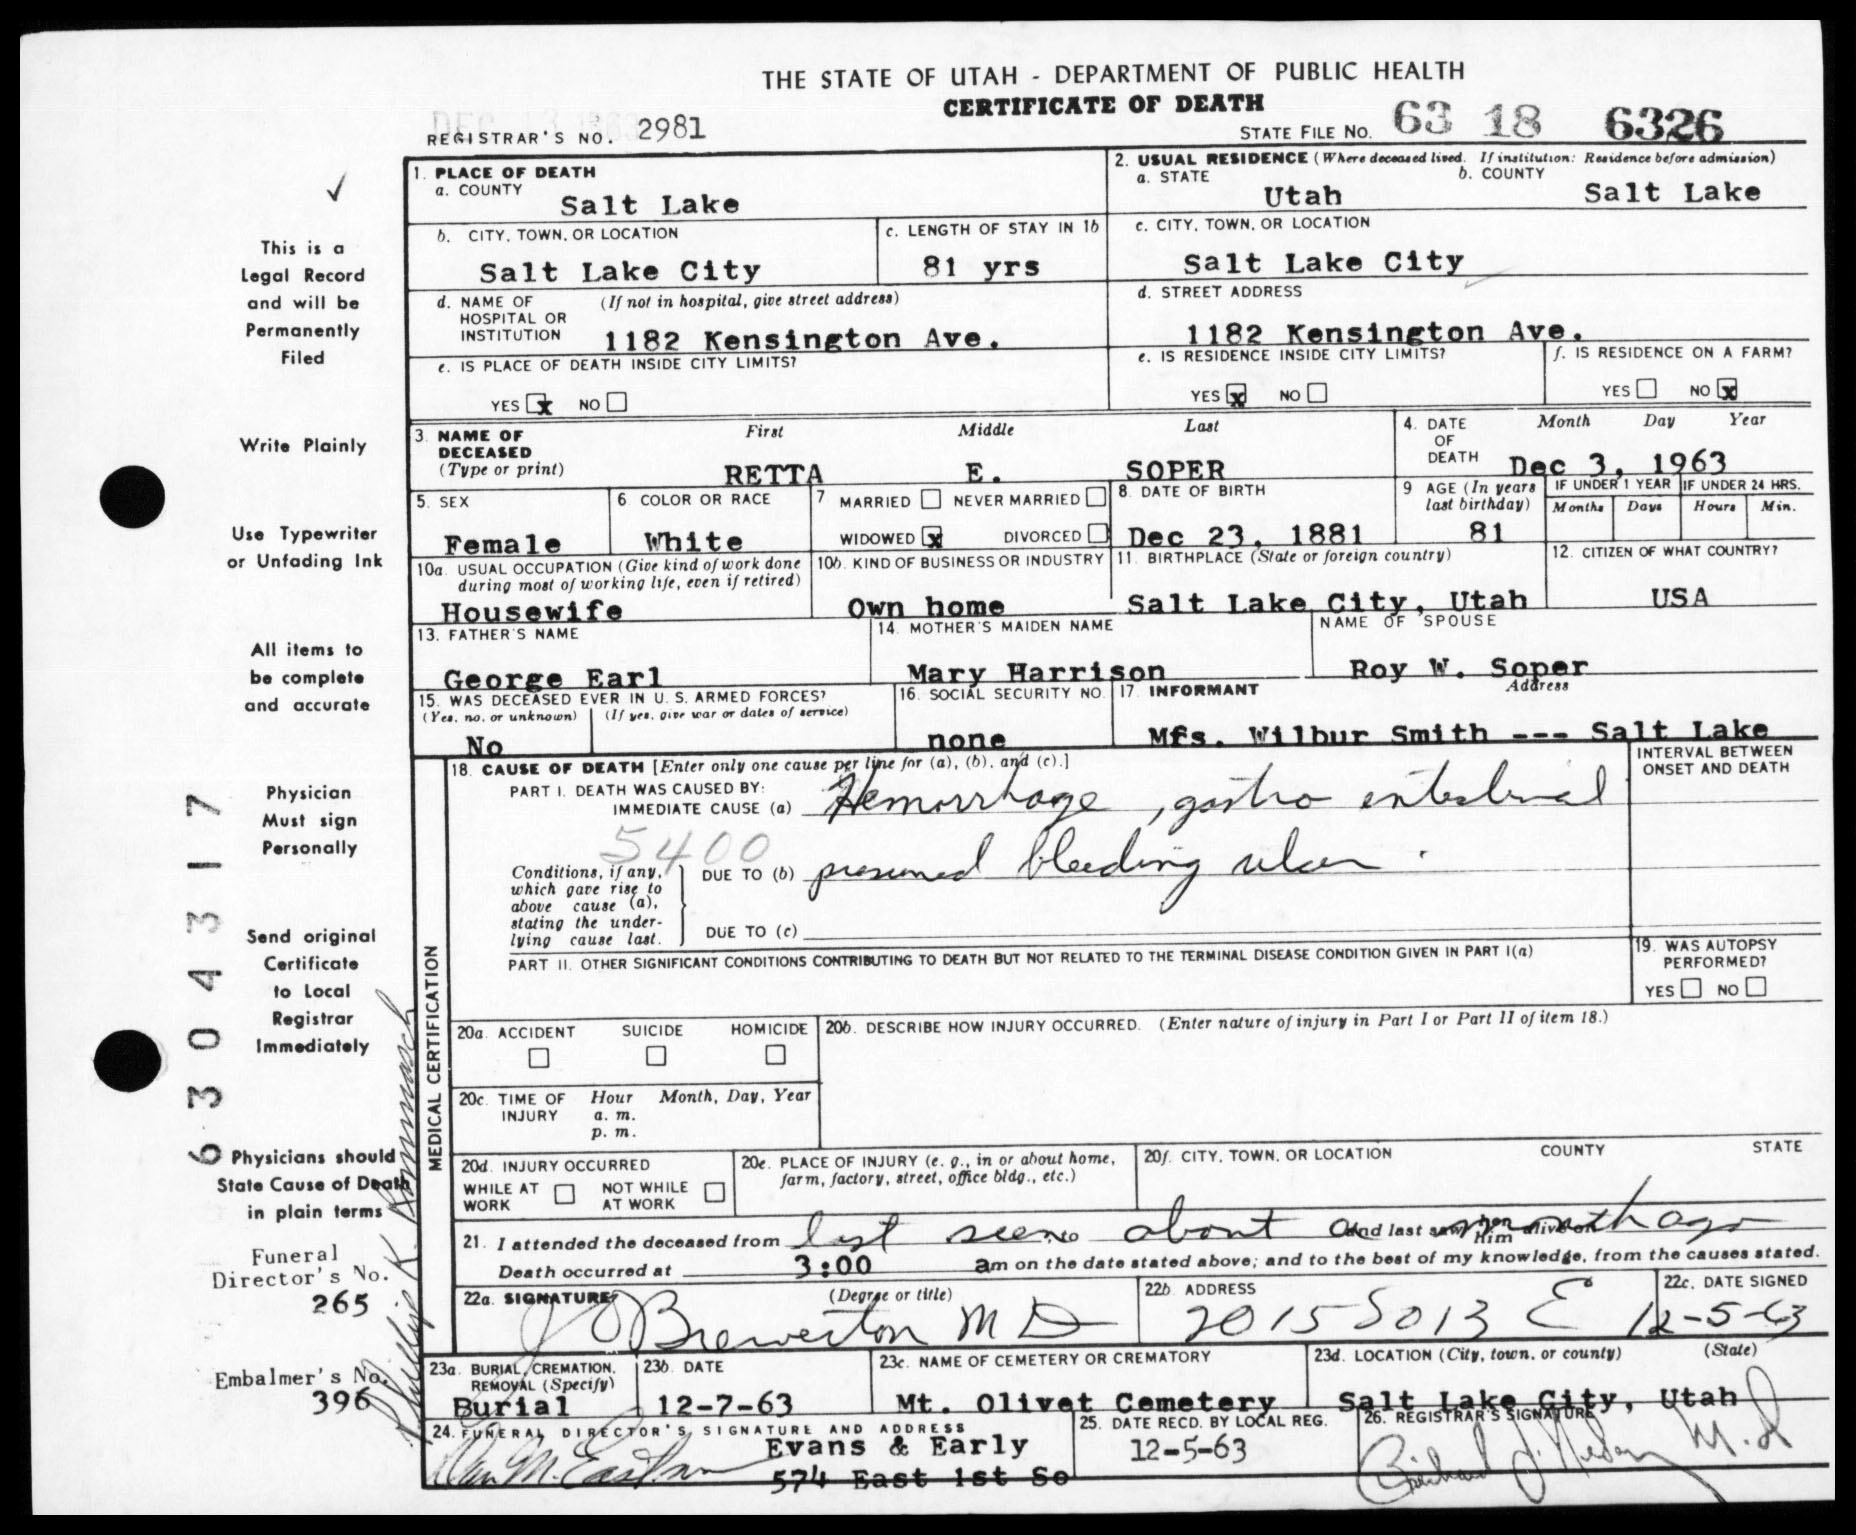 THE STATE OF UTAH - DEPARTMENT OF PUBLIC HEALTH
CERTIFICATE OF DEATH
REGISTRAR'S NO. 2981
STATE FILE NO. 63 18 6326
This is a
Legal Record
and will be
Permanently
Filed
Write Plainly
Use Typewriter
or Unfading Ink
All items to
be complete
and accurate
Physician
Must sign
Personally
Send original
Certificate
to Local
Registrar
Immediately
Physicians should
State Cause of Death
in plain terms
Funeral
Director's No.
265
Embalmer's No.
396
6304317
Phillip K.
1. PLACE OF DEATH
a. COUNTY
Salt Lake
2. USUAL RESIDENCE (Where deceased lived. If institution: Residence before admission)
a. STATE
Utah
b. COUNTY
Salt Lake
b. CITY, TOWN, OR LOCATION
Salt Lake City
c. LENGTH OF STAY IN 1b
81 yrs
c. CITY, TOWN, OR LOCATION
Salt Lake City
d. NAME OF HOSPITAL OR INSTITUTION (If not in hospital, give street address)
1182 Kensington Ave.
d. STREET ADDRESS
1182 Kensington Ave.
e. IS PLACE OF DEATH INSIDE CITY LIMITS?
YES x NO
e. IS RESIDENCE INSIDE CITY LIMITS?
YES x NO
f. IS RESIDENCE ON A FARM?
YES NO x
3. NAME OF DECEASED (Type or print)
First Middle Last
RETTA E. SOPER
4. DATE OF DEATH
Month Day Year
Dec 3, 1963
5. SEX
Female
6 COLOR OR RACE
White
7 MARRIED NEVER MARRIED
WIDOWED x DIVORCED
8. DATE OF BIRTH
Dec 23, 1881
9 AGE (In years last birthday)
81
IF UNDER 1 YEAR
Months Days
IF UNDER 24 HRS.
Hours Min.
10a. USUAL OCCUPATION (Give kind of work done during most of working life, even if retired)
Housewife
10b. KIND OF BUSINESS OR INDUSTRY
Own home
11. BIRTHPLACE (State or foreign country)
Salt Lake City, Utah
12. CITIZEN OF WHAT COUNTRY?
USA
13. FATHER'S NAME
George Earl
14. MOTHER'S MAIDEN NAME
Mary Harrison
NAME OF SPOUSE
Roy W. Soper
15. WAS DECEASED EVER IN U. S. ARMED FORCES?
(Yes, no, or unknown) (If yes, give war or dates of service)
No
16. SOCIAL SECURITY NO.
none
17. INFORMANT Address
Mrs. Wilbur Smith --- Salt Lake
MEDICAL CERTIFICATION
18. CAUSE OF DEATH [Enter only one cause per line for (a), (b), and (c).]
INTERVAL BETWEEN ONSET AND DEATH
PART I. DEATH WAS CAUSED BY:
IMMEDIATE CAUSE (a) Hemorrhage, gastro intestinal
5400
Conditions, if any, which gave rise to above cause (a), stating the underlying cause last.
DUE TO (b) presumed bleeding ulcer.
DUE TO (c)
PART II. OTHER SIGNIFICANT CONDITIONS CONTRIBUTING TO DEATH BUT NOT RELATED TO THE TERMINAL DISEASE CONDITION GIVEN IN PART I(a)
19. WAS AUTOPSY PERFORMED?
YES NO
20a. ACCIDENT SUICIDE HOMICIDE
20b. DESCRIBE HOW INJURY OCCURRED. (Enter nature of injury in Part I or Part II of item 18.)
20c. TIME OF INJURY Hour Month, Day, Year
a. m.
p. m.
20d. INJURY OCCURRED
WHILE AT WORK NOT WHILE AT WORK
20e. PLACE OF INJURY (e. g., in or about home, farm, factory, street, office bldg., etc.)
20f. CITY, TOWN, OR LOCATION COUNTY STATE
21. I attended the deceased from last seen about a month ago and last saw her him alive on
Death occurred at 3:00 am on the date stated above; and to the best of my knowledge, from the causes stated.
22a. SIGNATURE (Degree or title)
J O Brewerton M D
22b ADDRESS
2015 So 13 E
22c. DATE SIGNED
12-5-63
23a. BURIAL, CREMATION, REMOVAL (Specify)
Burial
23b. DATE
12-7-63
23c. NAME OF CEMETERY OR CREMATORY
Mt. Olivet Cemetery
23d. LOCATION (City, town, or county) (State)
Salt Lake City, Utah
24. FUNERAL DIRECTOR'S SIGNATURE AND ADDRESS
Evans & Early
574 East 1st So
25. DATE RECD. BY LOCAL REG.
12-5-63
26. REGISTRAR'S SIGNATURE
M.D